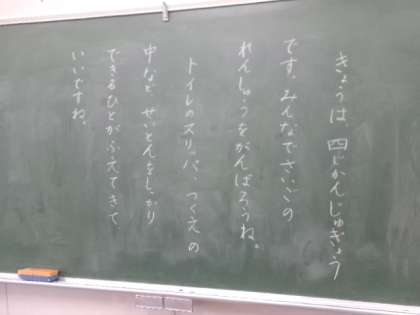 きょうは 四じかんじゅぎょう
です。みんなでさいごの
れんしゅうをがんばろうね。
トイレのスリッパ、つくえの
中など せいとんをしっかり
できるひとがふえてきて、
いいですね。